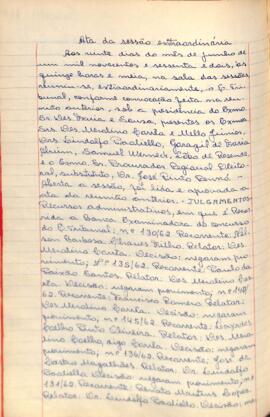 Ata da sessão extraordinária
Aos vinte dias do mês de junho de
um mil novecentos e sessenta e dois, às
quinze horas e meia, na sala das sessões
reuniu-se, extraordinariamente, o E. Tri-
bunal, conforme convocação feita na reu-
nião anterior, sob a presidência do Exmo
Sr. Des. Faria e Sousa, presentes os Exmos
Srs. Des. Merolino Corrêa e Mello Júnior,
Drs. Lindolfo Paoliello, de Faria
Samuel Werneck,
e o Exmo Sr. Procurador Regional Eleito-
ral, substituto, Dr. José Pinto Renó.
Aberta a sessão, foi lida e aprovada a
ata da reunião anterior. - JULGAMENTOS -
Recursos administrativos, em que é Recor-
rida a Banca Examinadora do concurso
do E. Tribunal: nº 130/62. Recorrente:
Barbosa Filho. Relator: Des.
Merolino Corrêa. Decisão: negaram pro-
vimento; nº 135/62. Recorrente: Paulo da
Paixão Santos. Relator: Des. Merolino Cor-
rêa. Decisão: negaram provimento; nº
62. Recorrente: Francisco Romero. Relator:
Des. Merolino Corrêa. Decisão: negaram
provimento; nº 145/62. Recorrente:
Coelho Pinto Oliveira. Relator: Des. Mero-
lino Coelho, digo Corrêa. Decisão: negaram
provimento; nº 136/62. Recorrente: José de
Castro Magalhães. Relator: Dr. Lindolfo
Paoliello. Decisão: negaram provimento; nº
131/62. Recorrente: Renato Martins Lopes.
Relator: Dr. Lindolfo Paoliello. Decisão: ne-